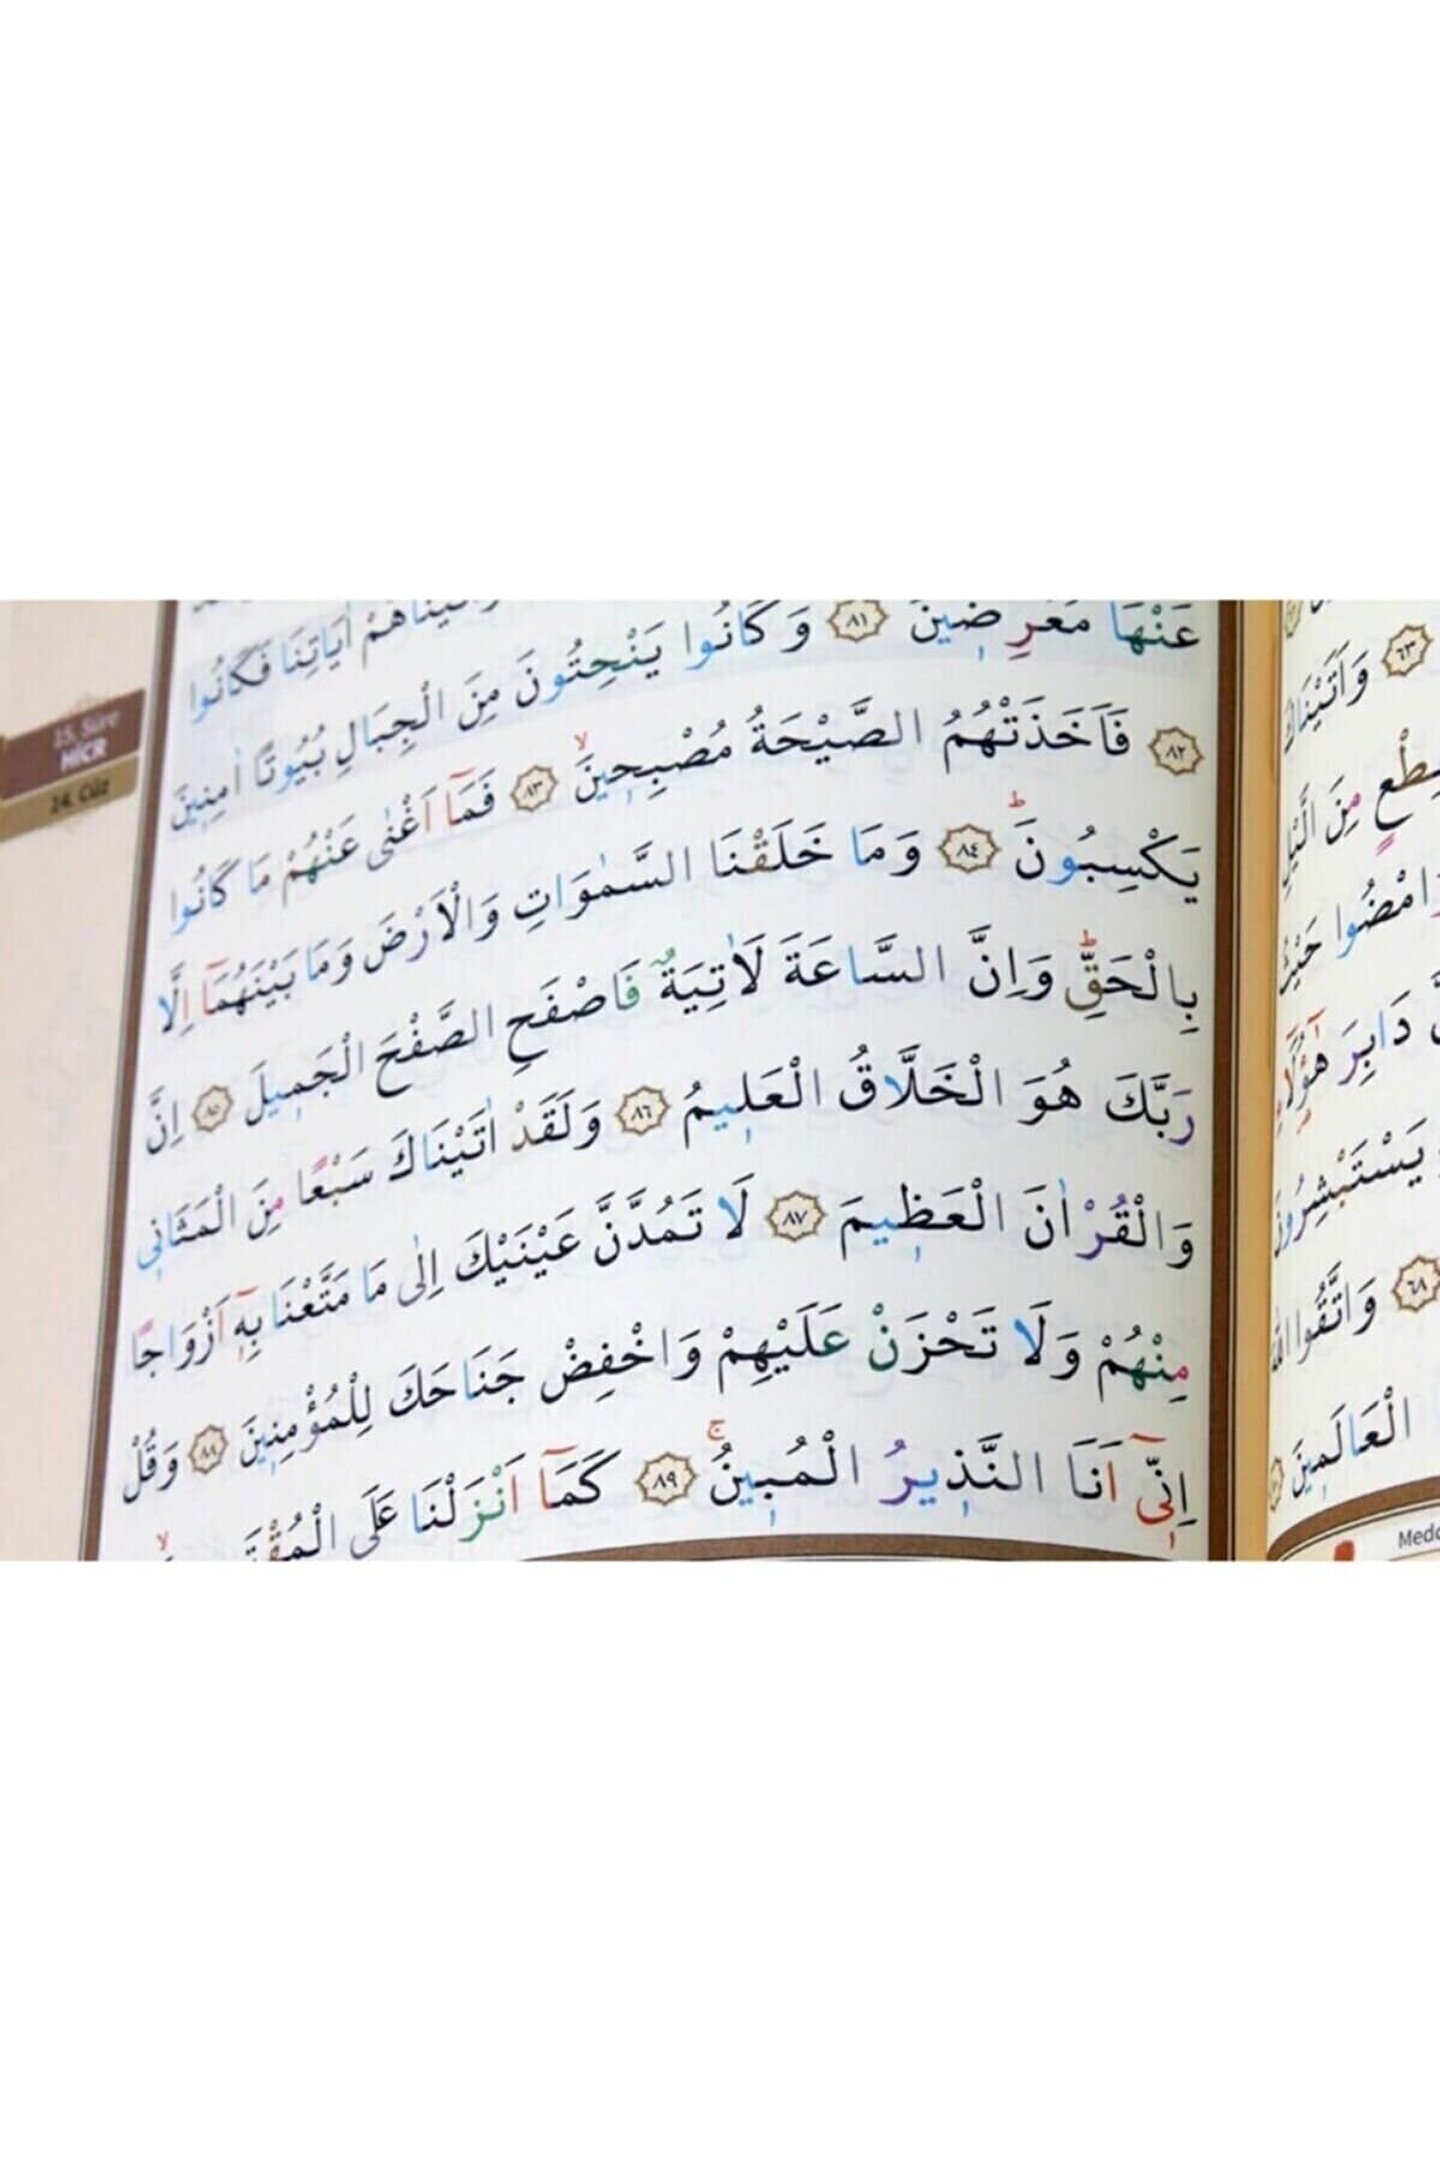 وَاٰتَيْنَاهُمْ اٰيَاتِنَا فَكَانُوا
عَنْهَا مُعْرِضِينَ ﴿٨١﴾ وَكَانُوا يَنْحِتُونَ مِنَ الْجِبَالِ بُيُوتًا اٰمِنِينَ
﴿٨٢﴾ فَاَخَذَتْهُمُ الصَّيْحَةُ مُصْبِحِينَۙ ﴿٨٣﴾ فَمَٓا اَغْنٰى عَنْهُمْ مَا كَانُوا
يَكْسِبُونَۜ ﴿٨٤﴾ وَمَا خَلَقْنَا السَّمٰوَاتِ وَالْاَرْضَ وَمَا بَيْنَهُمَٓا اِلَّا
بِالْحَقِّۜ وَاِنَّ السَّاعَةَ لَاٰتِيَةٌ فَاصْفَحِ الصَّفْحَ الْجَمِيلَ ﴿٨٥﴾ اِنَّ
رَبَّكَ هُوَ الْخَلَّاقُ الْعَلِيمُ ﴿٨٦﴾ وَلَقَدْ اٰتَيْنَاكَ سَبْعًا مِنَ الْمَثَانِي
وَالْقُرْاٰنَ الْعَظِيمَ ﴿٨٧﴾ لَا تَمُدَّنَّ عَيْنَيْكَ اِلٰى مَا مَتَّعْنَا بِهٖٓ اَزْوَاجًا
مِنْهُمْ وَلَا تَحْزَنْ عَلَيْهِمْ وَاخْفِضْ جَنَاحَكَ لِلْمُؤْمِنِينَ ﴿٨٨﴾ وَقُلْ
اِنّٖٓي اَنَا النَّذِيرُ الْمُبِينُۚ ﴿٨٩﴾ كَمَٓا اَنْزَلْنَا عَلَى
15. Sûre
HİCR
14. Cüz
﴿٦٣﴾ وَاَتَيْنَاكَ
مِنَ الَّيْلِ
وَامْضُوا حَيْثُ
دَابِرَ هٰٓؤُ۬لَٓاءِ
يَسْتَبْشِرُونَ
﴿٦٨﴾ وَاتَّقُوا اللّٰهَ
الْعَالَمِينَ